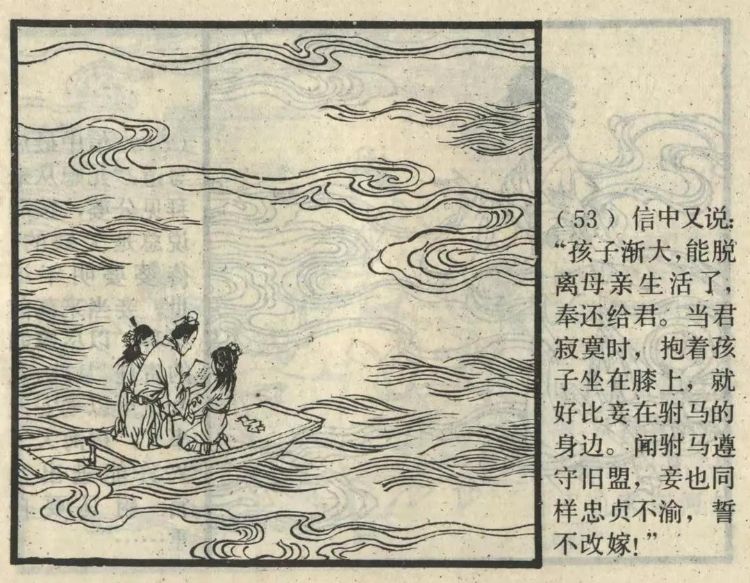 （53）信中又说：
“孩子渐大，能脱
离母亲生活了，
奉还给君。当君
寂寞时，抱着孩
子坐在膝上，就
好比妾在驸马的
身边。闻驸马遵
守旧盟，妾也同
样忠贞不渝，誓
不改嫁！”